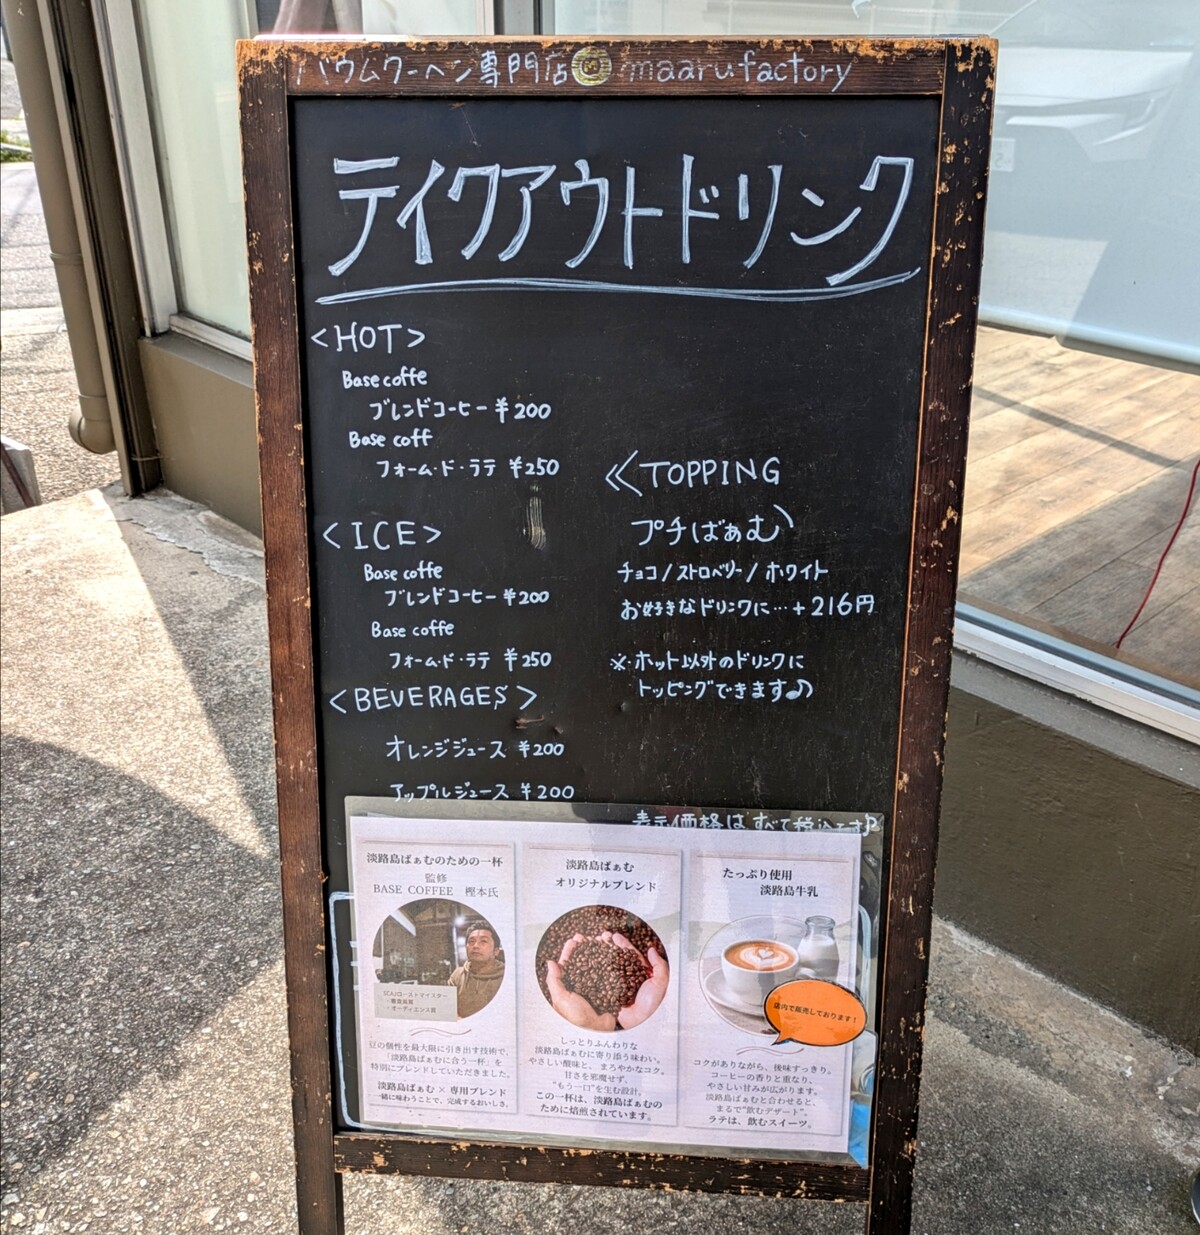 バウムクーヘン専門店 M maaru factory
テイクアウトドリンク
<HOT>
Base coffe
ブレンドコーヒー ¥200
Base coff
フォーム・ド・ラテ ¥250
<ICE>
Base coffe
ブレンドコーヒー ¥200
Base coffe
フォーム・ド・ラテ ¥250
<BEVERAGES>
オレンジジュース ¥200
アップルジュース ¥200
≪TOPPING
プチばぁむ
チョコ/ストロベリー/ホワイト
お好きなドリンクに…+216円
※ホット以外のドリンクに
トッピングできます♪
表示価格はすべて税込です
淡路島ばぁむのための一杯
監修
BASE COFFEE 樫本氏
SCAJローストマイスター
・審査員賞
・オーディエンス賞
豆の個性を最大限に引き出す技術で、
「淡路島ばぁむに合う一杯」を
特別にブレンドしていただきました。
淡路島ばぁむ × 専用ブレンド
一緒に味わうことで、完成するおいしさ。
淡路島ばぁむ
オリジナルブレンド
しっとりふんわりな
淡路島ばぁむに寄り添う味わい。
やさしい酸味と、まろやかなコク。
甘さを邪魔せず、
“もう一口”を生む設計。
この一杯は、淡路島ばぁむの
ために焙煎されています。
たっぷり使用
淡路島牛乳
店内で販売しております！
コクがありながら、後味すっきり。
コーヒーの香りと重なり、
やさしい甘みが広がります。
淡路島ばぁむと合わせると、
まるで“飲むデザート”。
ラテは、飲むスイーツ。